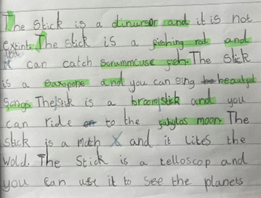 The Stick is a dinursor and it is not
Exsint. The stick is a fishing rod and
it can catch enormmouse fish. The stick
is a Saxopone and you can sing beautyul
Songs The Stick is a broomstick and you
can ride to the moon The
stick is a moth and it Lites the
wold. The Stick is a telloscop and
you can use it to See the planets